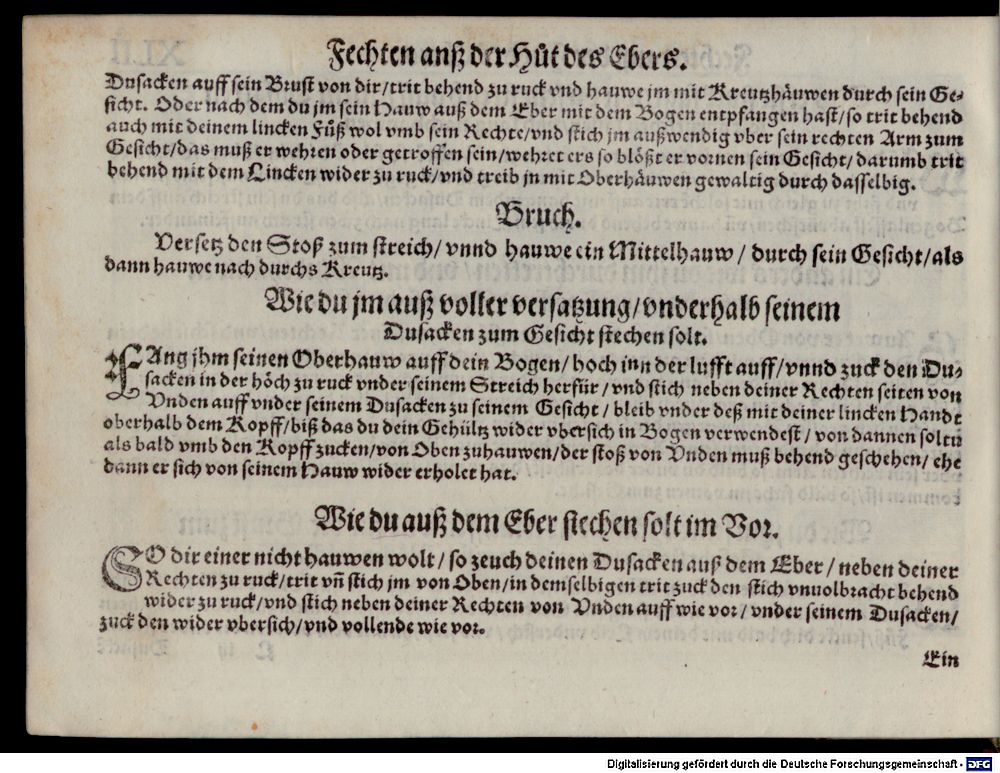 Fechten auß der Hůt des Ebers.
Dusacken auff sein Brust von dir/trit behend zu ruck vnd hauwe jm mit Kreutzhäuwen durch sein Ge-
sicht. Oder nach dem du jm sein Hauw auß dem Eber mit dem Bogen entpfangen hast/so trit behend
auch mit deinem lincken Fůß wol vmb sein Rechte/vnd stich jm außwendig vber sein rechten Arm zum
Gesicht/das muß er wehren oder getroffen sein/wehret ers so blößt er vornen sein Gesicht/darumb trit
behend mit dem Lincken wider zu ruck/vnd treib jn mit Oberhäuwen gewaltig durch dasselbig.
Bruch.
Versetz den Stoß zum streich/ vnnd hauwe ein Mittelhauw/ durch sein Gesicht/als
dann hauwe nach durchs Kreutz.
Wie du jm auß voller versatzung/vnderhalb seinem
Dusacken zum Gesicht stechen solt.
FAng jhm seinen Oberhauw auff dein Bogen/ hoch inn der lufft auff/vnnd zuck den Du-
sacken in der höch zu ruck vnder seinem Streich herfür/ vnd stich neben deiner Rechten seiten von
Vnden auff vnder seinem Dusacken zu seinem Gesicht/ bleib vnder deß mit deiner lincken Handt
oberhalb dem Kopff/biß das du dein Gehültz wider vbersich in Bogen verwendest/ von dannen soltu
als bald vmb den Kopff zucken/von Oben zuhauwen/der stoß von Vnden muß behend geschehen/ ehe
dann er sich von seinem Hauw wider erholet hat.
Wie du auß dem Eber stechen solt im Vor.
SO dir einer nicht hauwen wolt/ so zeuch deinen Dusacken auß dem Eber/ neben deiner
Rechten zu ruck/trit vñ stich jm von Oben/in demselbigen trit zuck den stich vnuolbracht behend
wider zu ruck/vnd stich neben deiner Rechten von Vnden auff wie vor/ vnder seinem Dusacken/
zuck den wider vbersich/vnd vollende wie vor.
Ein
Digitalisierung gefördert durch die Deutsche Forschungsgemeinschaft - DFG